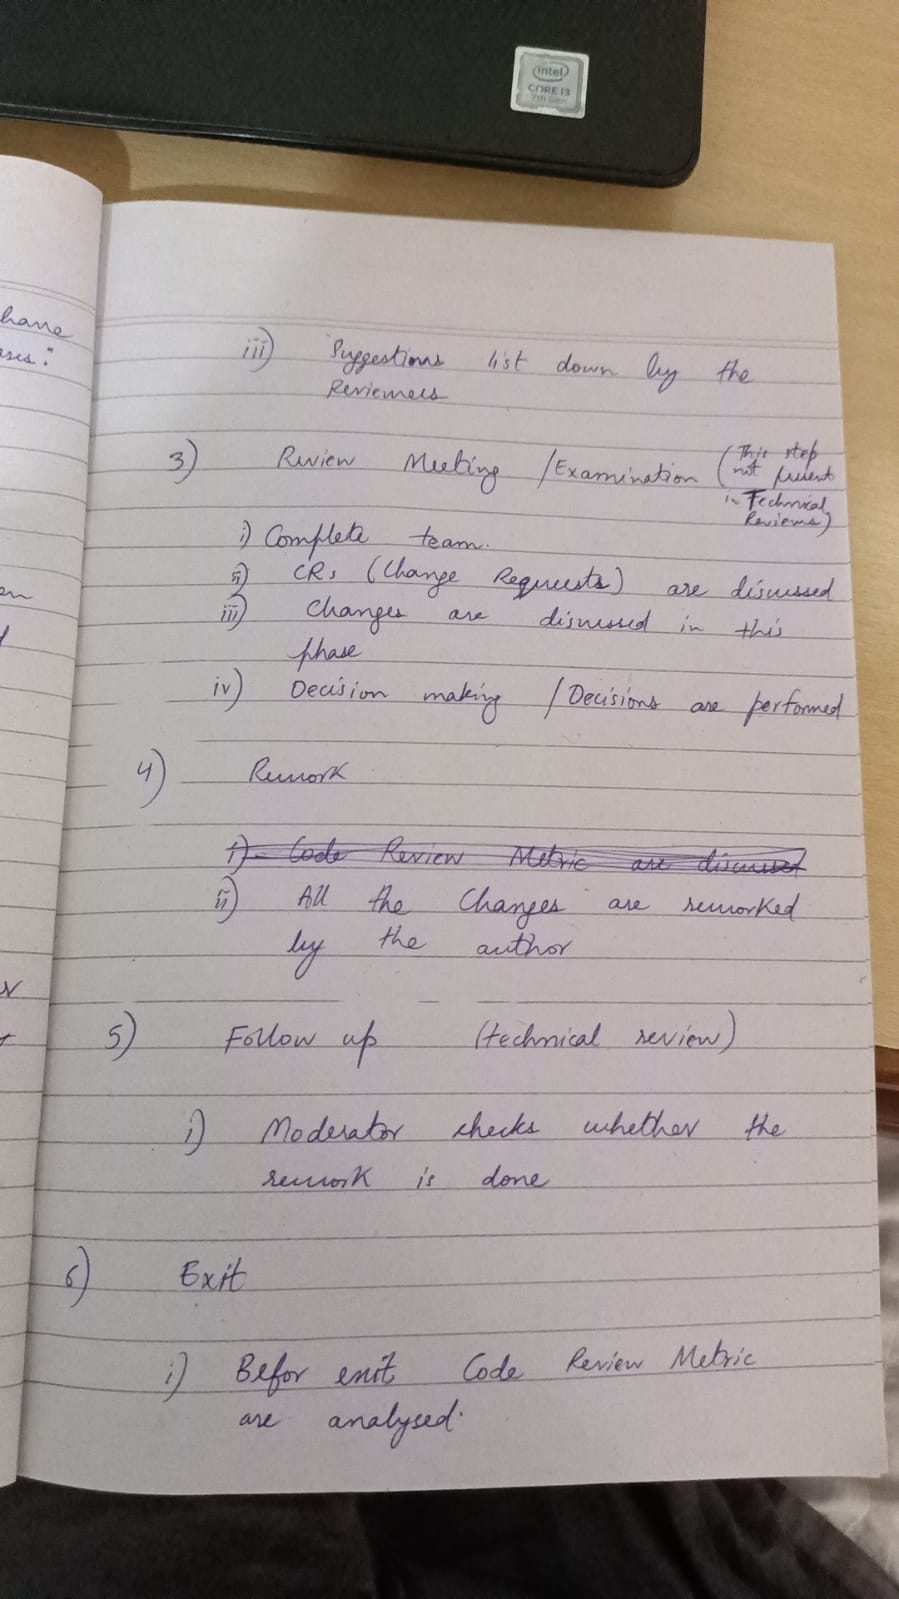 intel
CORE i3
7th Gen
have
ases:
iii) Suggestions list down by the
Reviewers
3) Review Meeting / Examination (This step
not present
in Technical
Reviews)
i) Complete team.
ii) CRs (Change Requests) are discussed
iii) Changes are discussed in this
phase
iv) Decision making / Decisions are performed
4) Rework
i) Code Review Metric are discussed
ii) All the Changes are reworked
by the author
5) Follow up (technical review)
i) Moderator checks whether the
rework is done
6) Exit
i) Befor exit Code Review Metric
are analysed.